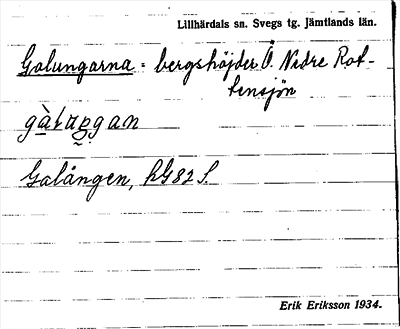 Lillhärdals sn. Svegs tg. Jämtlands län.
Galungarna = bergshöjder Ö. Nedre Rot-
tensjön
Galången, kG82 S.
Erik Eriksson 1934.